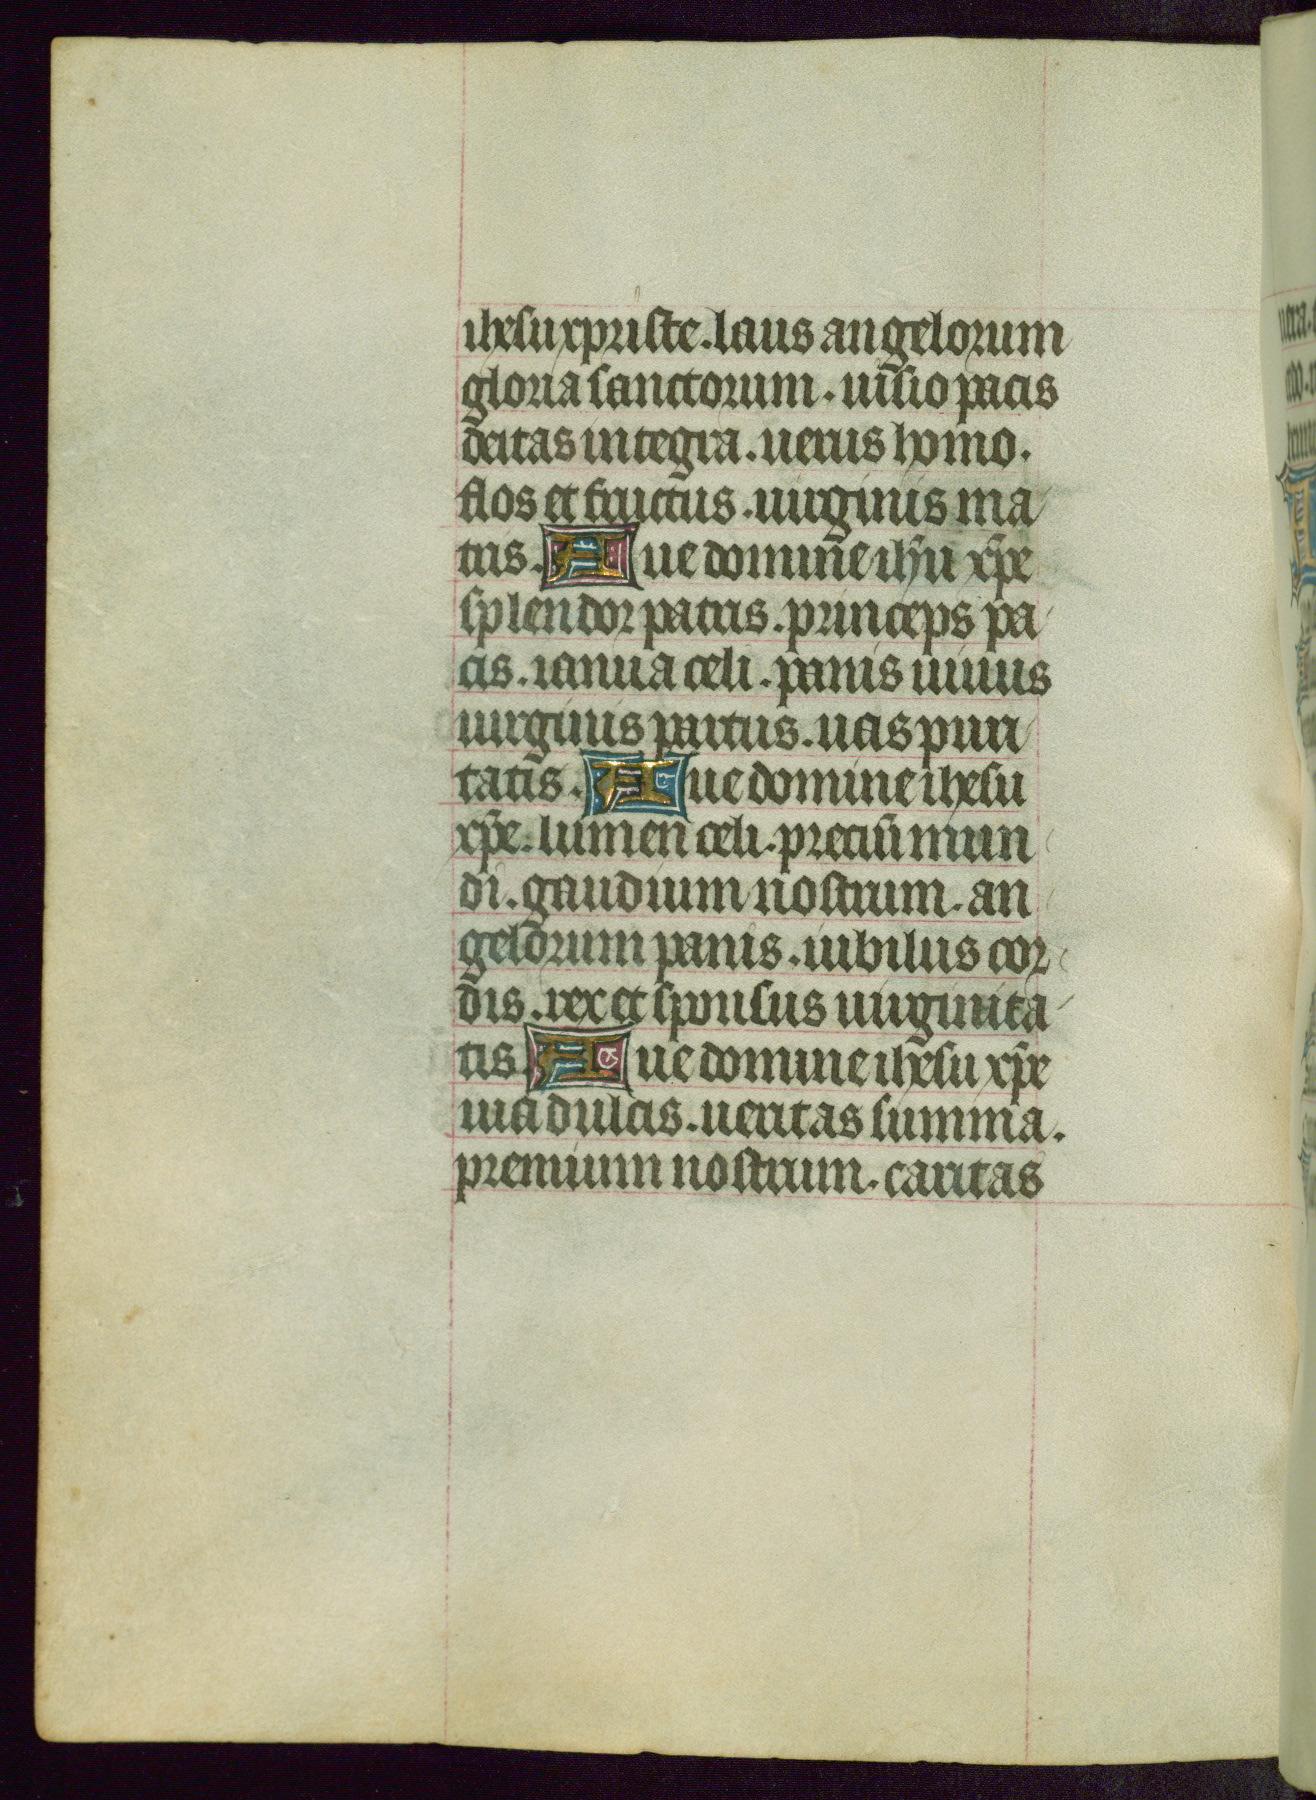 ihesu xpriste. laus angelorum
gloria sanctorum. uisio pacis
deitas integra. uerus homo.
flos et fructus. uirginis ma
tris. Aue domine ihu xpe
splendor patris. princeps pa
cis. ianua celi. panis uiuus
uirginis partus. uas puri
tatis. Aue domine ihesu
xpe. lumen celi. preciu mun
di. gaudium nostrum. an
gelorum panis. iubilus cor
dis. rex et sponsus uirginita
tis. Aue domine ihesu xpe
uia dulcis. ueritas summa.
premium nostrum. caritas